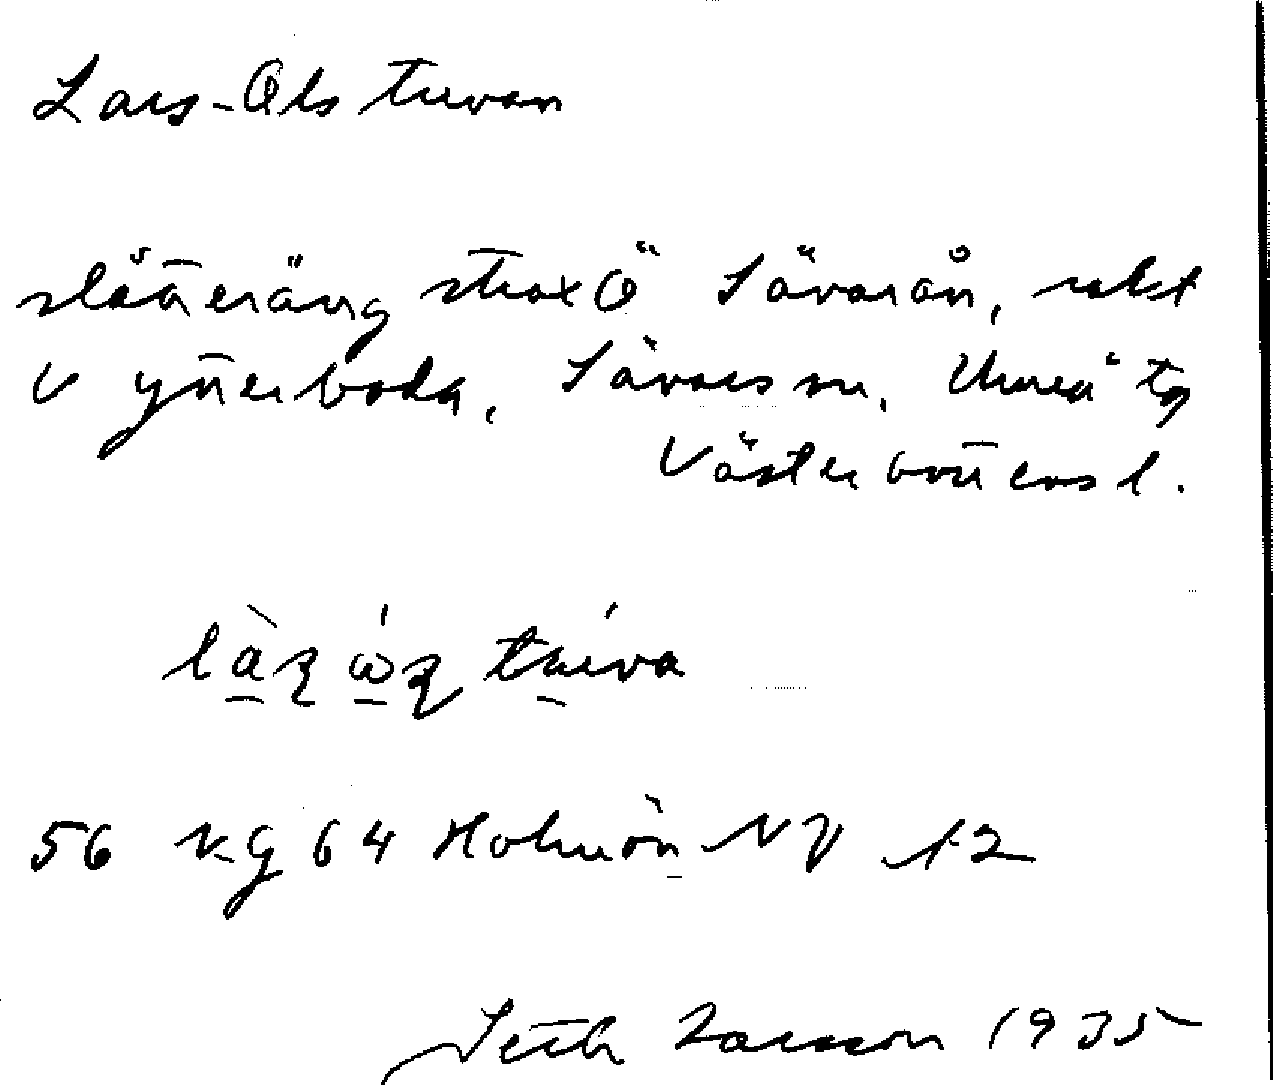 Lars-Ols tuvan
slåtteräng strax Ö Sävarån, rakt
V Ytterboda, Sävars sn, Umeå tg
Västerbottens l.
56 KG 64 Holmön NV 12
Seth Larsson 1935